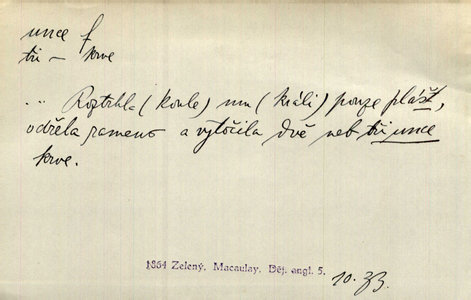 unce f
tři – krve
... Roztrhla (koule) mu (králi) pouze plášť,
odřela rameno a vytočila dvě neb tři unce
krve.
1864 Zelený. Macaulay. Děj. angl. 5.
10.